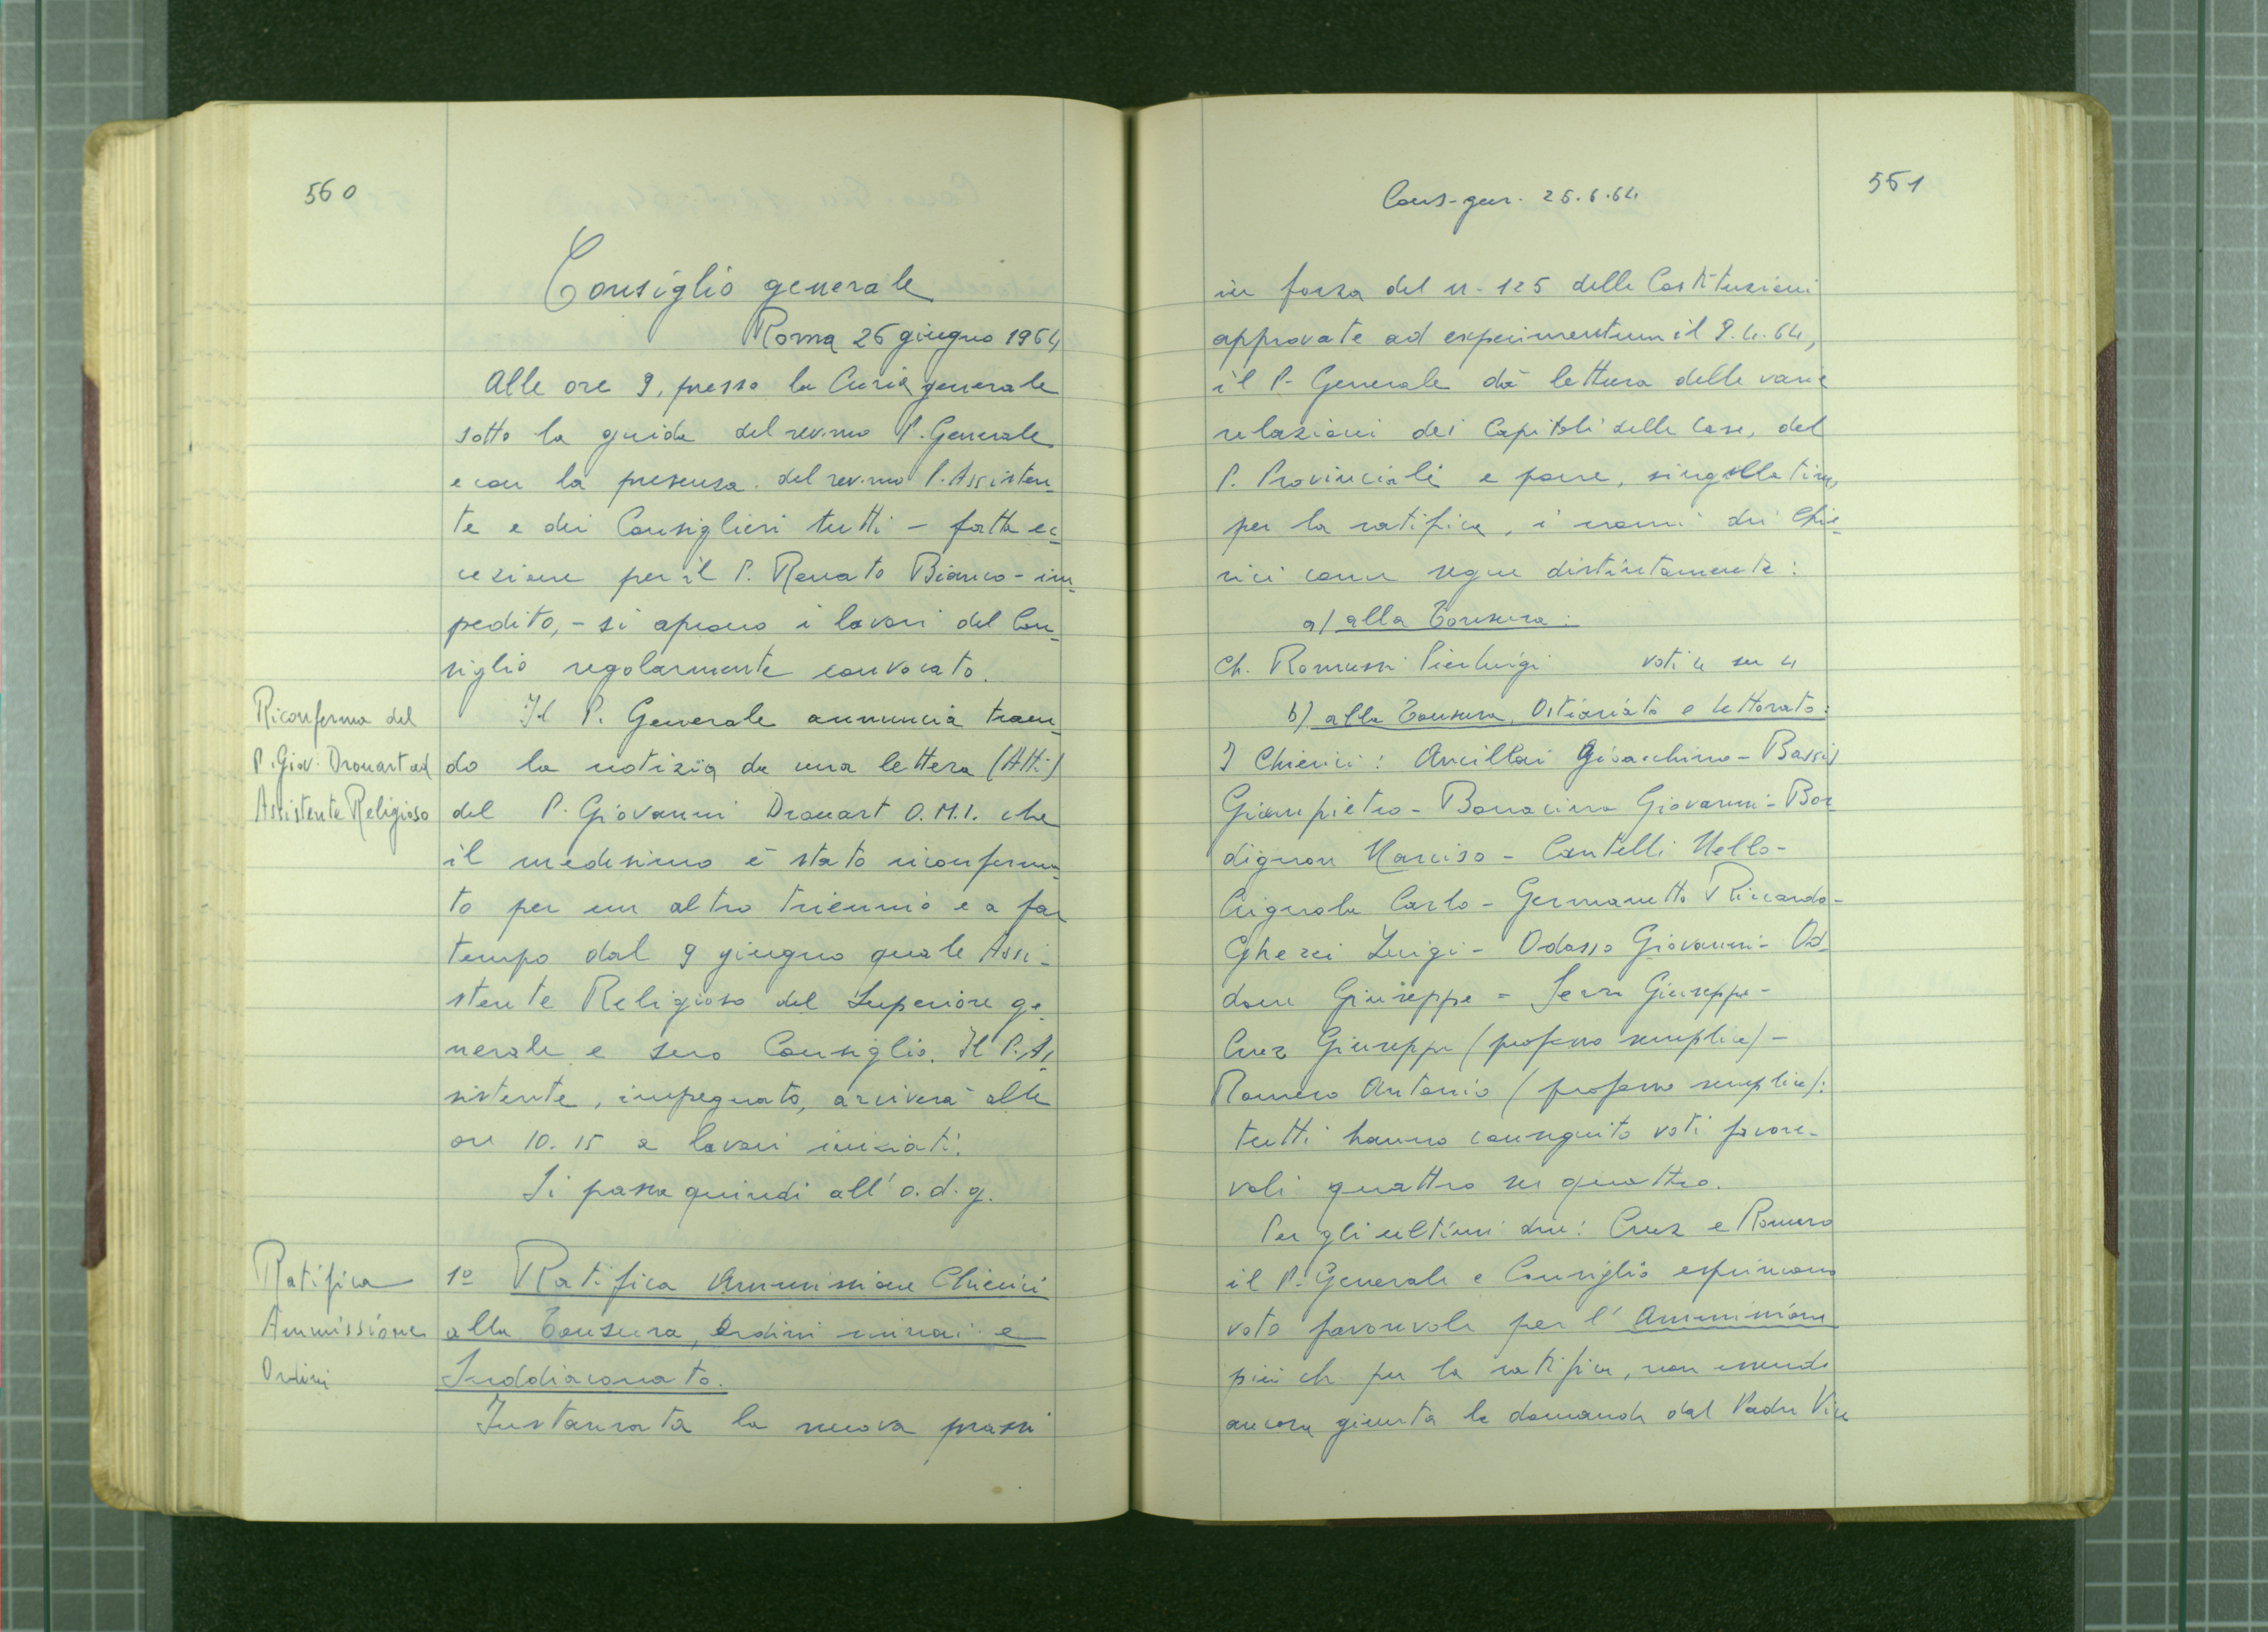 560
Consiglio generale
Roma 26 giugno 1964
Alle ore 9, presso la Curia generale
sotto la guida del rev.mo P. Generale
e con la presenza del rev.mo P. Assisten-
te e dei Consiglieri tutti - fatta ec-
cezione per il P. Renato Bianco - im-
pedito, - si aprono i lavori del Con-
siglio regolarmente convocato.
Riconferma del
P. Giov. Drouart ad
Assistente Religioso
Il P. Generale annuncia traen-
do la notizia da una lettera (Atti)
del P. Giovanni Drouart O.M.I. che
il medesimo è stato riconferma-
to per un altro triennio e a far
tempo dal 9 giugno quale Assi-
stente Religioso del Superiore ge-
nerale e suo Consiglio. Il P. As-
sistente, impegnato, arriverà alle
ore 10.15 a lavori iniziati.
Si passa quindi all'o.d.g.
Ratifica
Ammissione
Ordini
1º Ratifica Ammissione Chierici
alla Tonsura, Ordini minori e
Suddiaconato.
Instaurata la nuova prassi
561
Cons. gen. 26.6.64
in forza del n. 125 delle Costituzioni
approvate ad experimentum il 9.4.64,
il P. Generale dà lettura delle varie
relazioni dei Capitoli delle Case, del
P. Provinciale e pone, singillatim,
per la ratifica, i nomi dei Chie-
rici come segue distintamente:
a) alla Tonsura:
Ch. Romussi Pierluigi voti 4 su 4
b) alla Tonsura, Ostiariato e Lettorato:
I Chierici: Ancillai Gioacchino - Bassis
Giampietro - Bonacina Giovanni - Bor
dignon Narciso - Cantelli Nello -
Crignola Carlo - Germanetto Riccardo -
Ghezzi Luigi - Odasso Giovanni - Od-
done Giuseppe - Serra Giuseppe -
Cruz Giuseppe (professo semplice) -
Romero Antonio (professo semplice):
tutti hanno conseguito voti favore-
voli quattro su quattro.
Per gli ultimi due: Cruz e Romero
il P. Generale e Consiglio esprimono
voto favorevole per l'Ammissione
più ch. per la ratifica, non essendo
ancora giunta la domanda dal Padre Vice